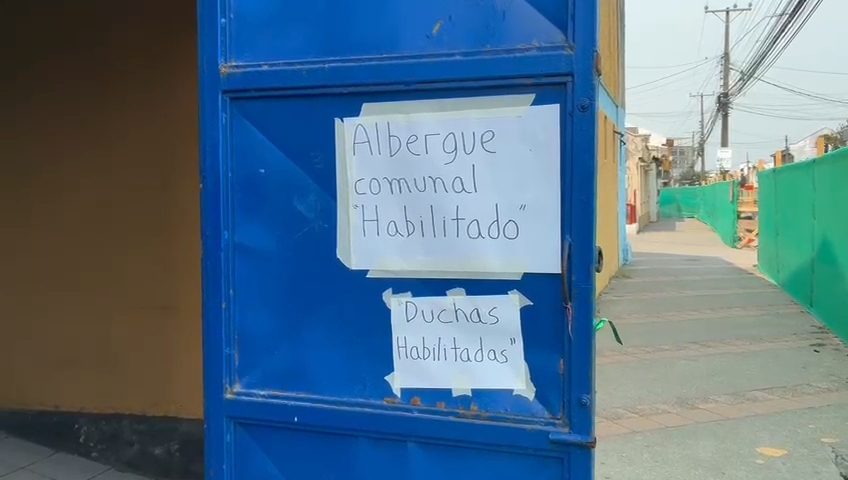 Albergue
comunal
"Habilitado"
"Duchas
Habilitadas"